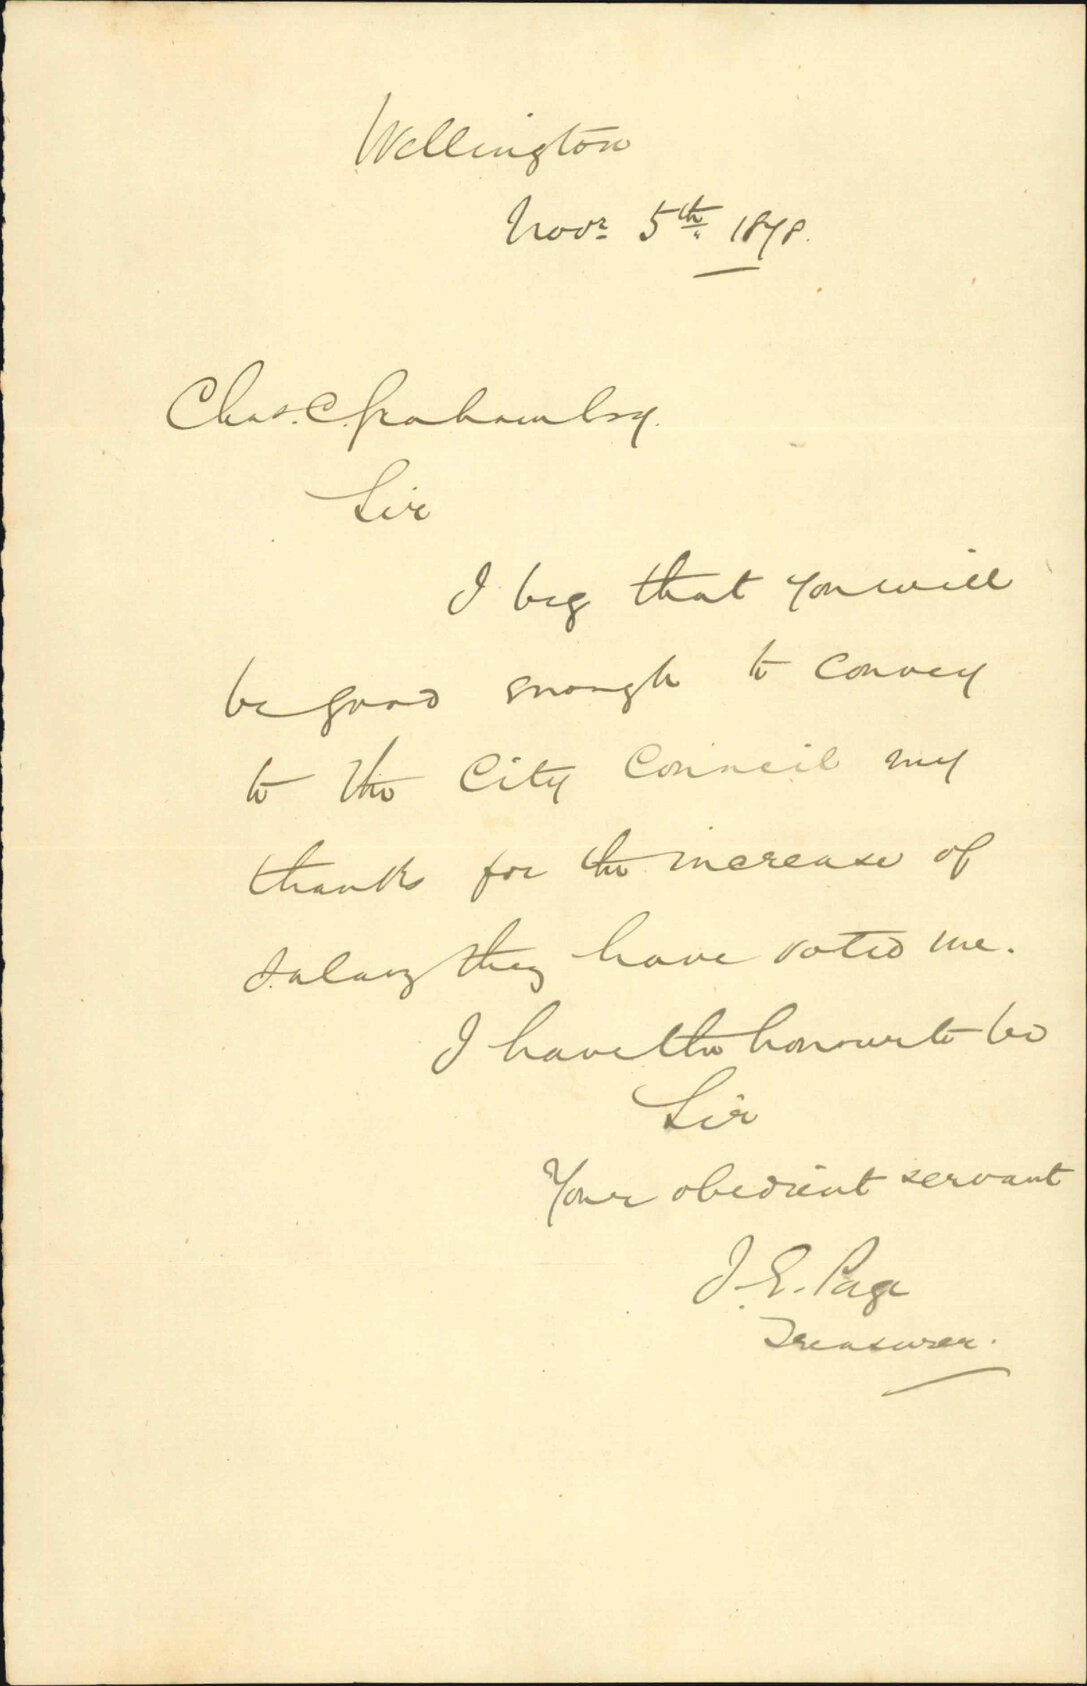 Wellington
Novr 5th 1878.
Chas. C. Graham Esq.
Sir
I beg that you will
be good enough to convey
to the City Council my
thanks for the increase of
salary they have voted me.
I have the honour to be
Sir
Your obedient servant
J. E. Page
Treasurer.